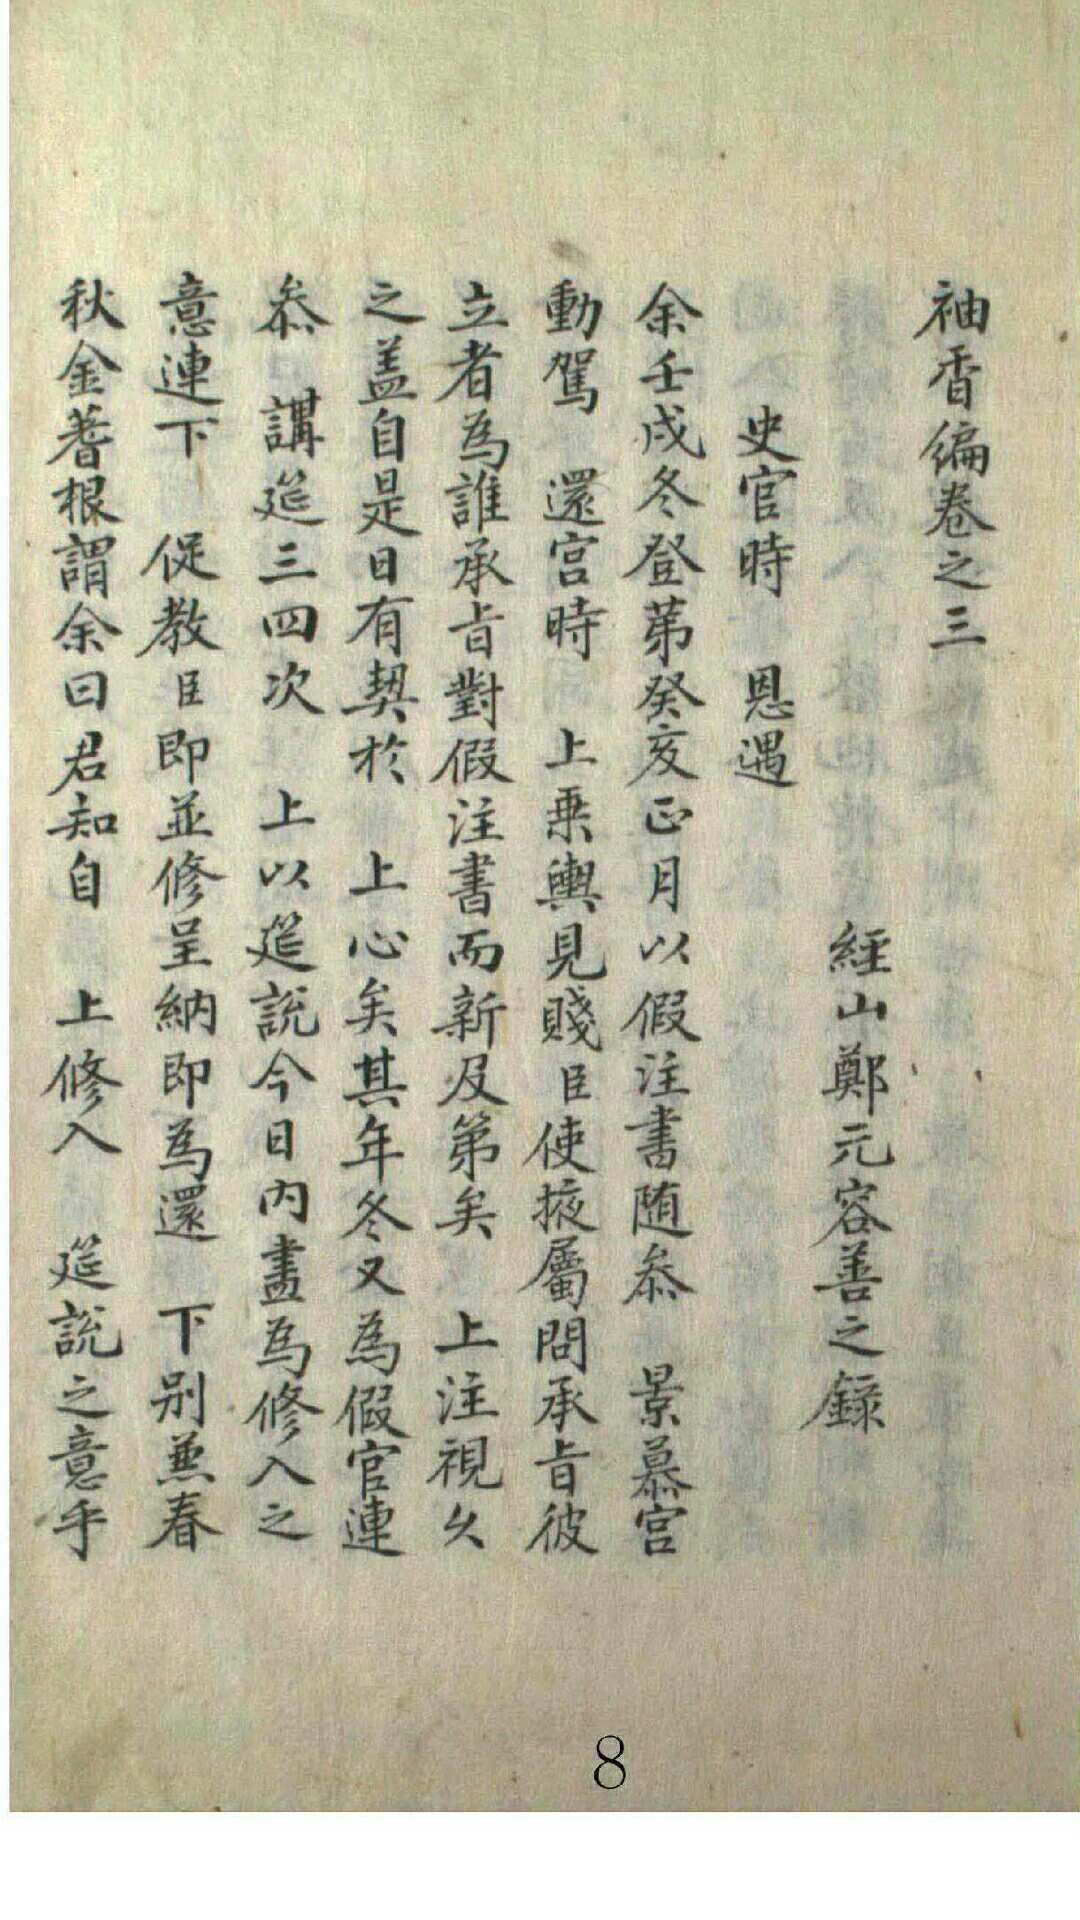 袖香編卷之三
經山鄭元容善之錄
史官時　恩遇
余壬戌冬登第癸亥正月以假注書随叅　景慕宮
動駕　還宮時　上乗輿見賤臣使掖屬問承旨彼
立者為誰承旨對假注書而新及第矣　上注視久
之盖自是日有契於　上心矣其年冬又為假官連
叅　講筵三四次　上以筵說今日內盡為修入之
意連下　促教臣即並修呈納即為還　下别兼春
秋金蓍根謂余曰君知自　上修入　筵說之意乎
8